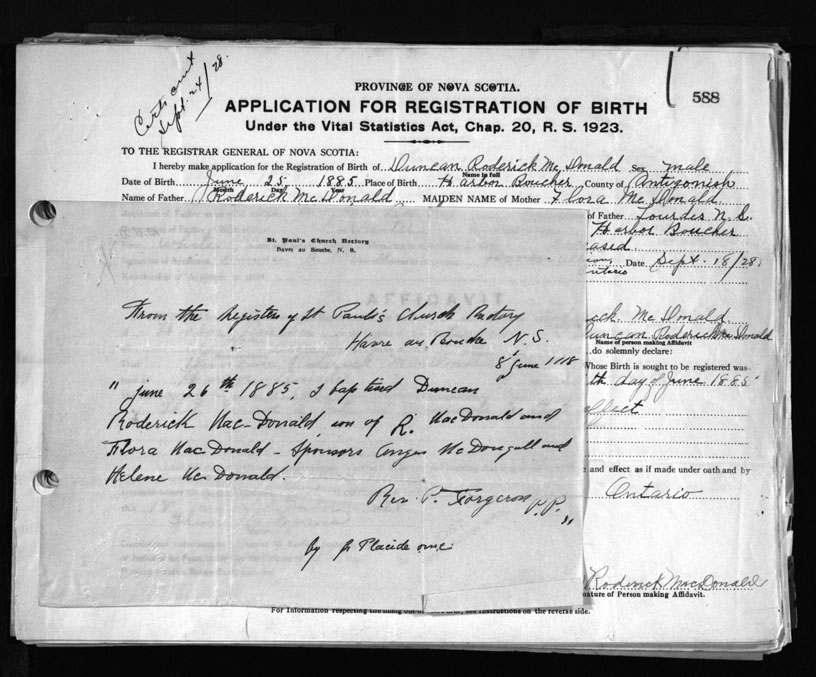 Certs out
Sept. 24/28.
588
PROVINCE OF NOVA SCOTIA.
APPLICATION FOR REGISTRATION OF BIRTH
Under the Vital Statistics Act, Chap. 20, R. S. 1923.
TO THE REGISTRAR GENERAL OF NOVA SCOTIA:
I hereby make application for the Registration of Birth of Duncan Roderick McDonald Sex male
Name in full
Date of Birth June 25 1885 Place of Birth Harbor Boucher County of Antigonish
Month Day Year
Name of Father Roderick McDonald MAIDEN NAME of Mother Flora McDonald
of Father Lourdes N.S.
Harbor Boucher
Date Sept. 18/28
Ontario
St. Paul's Church Rectory
Havre au Bouche, N. S.
From the registers of St Paul's Church Rectory
Havre au Bouche N.S.
8 June
"june 26th 1885, I baptised Duncan
Roderick MacDonald son of R. MacDonald and
Flora MacDonald - Sponsors Angus McDougall and
Helene McDonald.
Rev. P. Forgeron P.P."
by fr Placide
McDonald
Duncan Roderick McDonald
Name of person making Affidavit
do solemnly declare:
Whose Birth is sought to be registered was
th day of June 1885
effect
and effect as if made under oath and by
Ontario
Roderick MacDonald
nature of Person making Affidavit.
For Information respecting the filling out of see instructions on the reverse side.